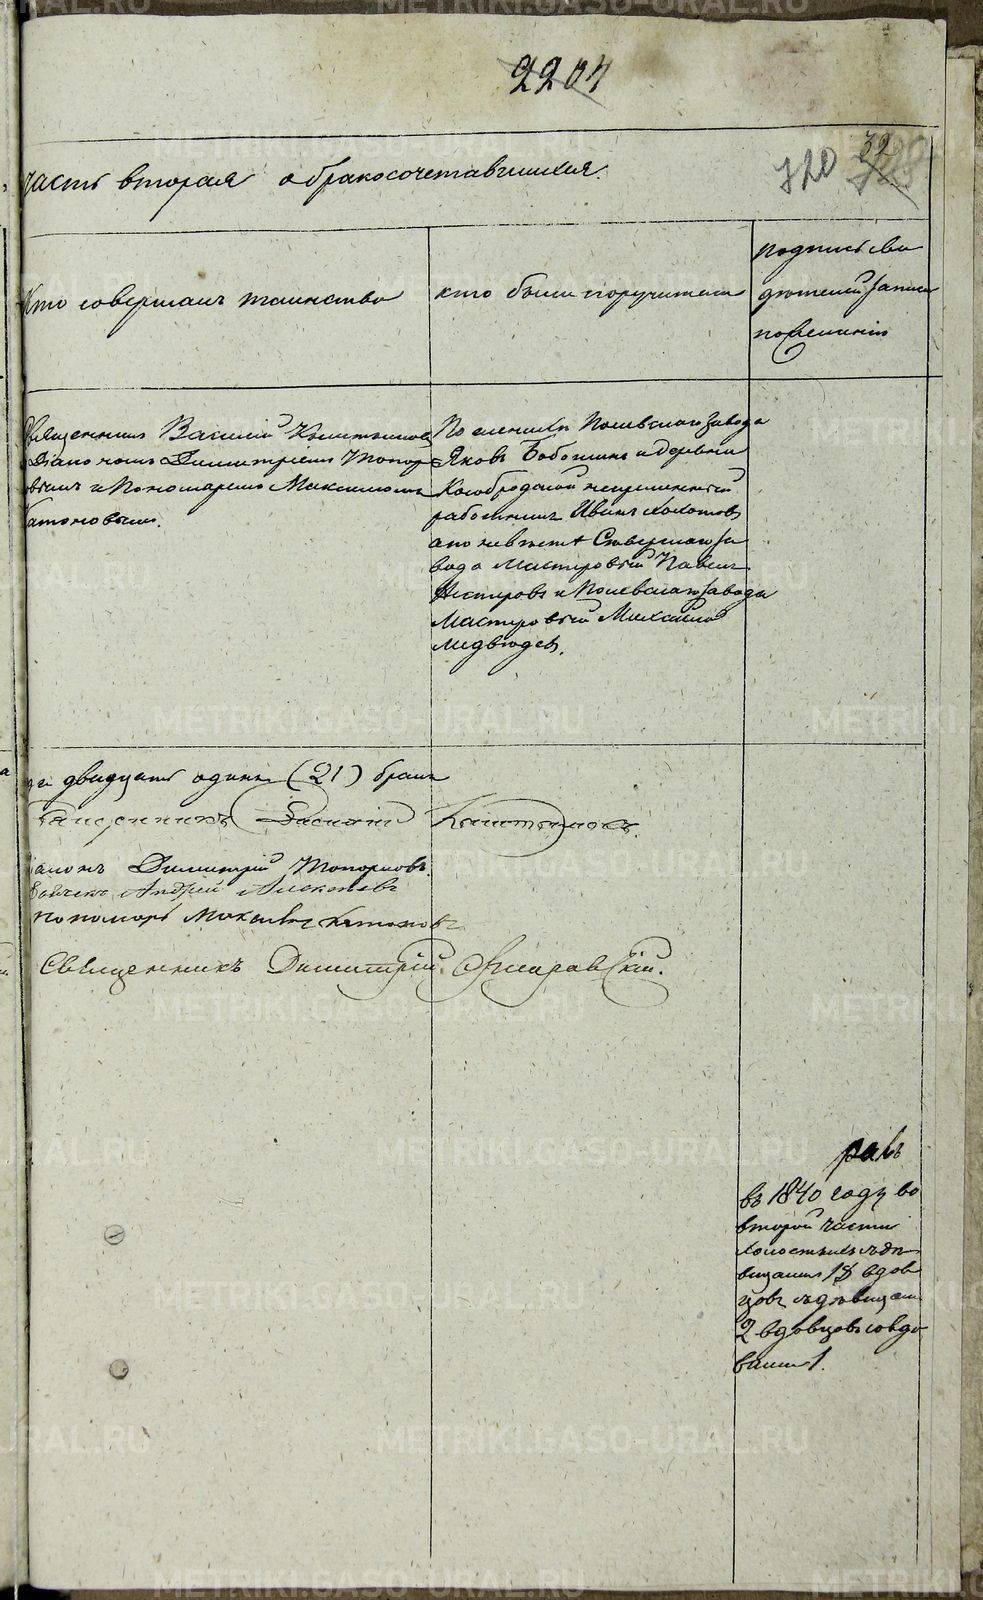 2204
720 32
часть вторая о бракосочетавшихся.
Кто совершалъ таинство
кто были поручители
подпись сви
дѣтелей записи
по желанію
Священникъ Василій Кыштымовъ
Діакономъ Димитріемъ Топор
ковымъ и Пономаремъ Максимомъ
Катоновымъ.
По женихѣ Полевскаго завода
Яковъ Бабошинъ и деревни
Кособродской непремѣнный
работникъ Иванъ Холотовъ
а по невѣстѣ Сѣверскаго за
вода мастеровый Павелъ
Нестеровъ и Полевскаго завода
мастеровый Михайло
Медвѣдевъ.
двадцать одинъ (21) бракъ
Священникъ Василій Кыштымовъ.
Діаконъ Димитрій Топорковъ.
Андрей
Пономарь Максимъ Катоновъ
Священникъ Димитрій
въ 1840 году во
второй части
холостыхъ съ дѣ
вицами 18 вдов
цовъ съ дѣвицами
2 вдовцовъ со вдо
вами 1.
METRIKI.GASO-URAL.RU